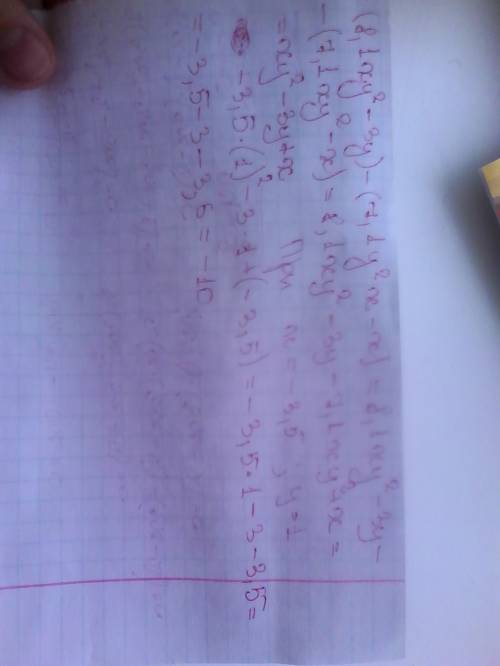 (8,1xy² - 3y) - (7,1y²x - x) = 8,1xy² - 3y -
- (7,1xy² - x) = 8,1xy² - 3y - 7,1xy² + x =
= xy² - 3y + x При x = -3,5 ; y = 1
-3,5·(1)² - 3·1 + (-3,5) = -3,5·1 - 3 - 3,5 =
= -3,5 - 3 - 3,5 = -10